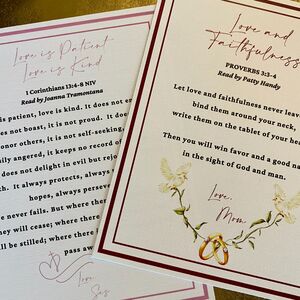 Love is Patient
Love is Kind
1 Corinthians 13:4-8 NIV
Read by Joanna Tramontana
is patient, love is kind. It does not en
oes not boast, it is not proud. It does
onor others, it is not self-seeking,
ily angered, it keeps no record of
does not delight in evil but rejoi
th. It always protects, always
hopes, always persever
ve never fails. But where the
they will cease; where there
ll be stilled; where there
pass away
Love,
Love and
Faithfulness
PROVERBS 3:3-4
Read by Patty Handy
Let love and faithfulness never leave
bind them around your neck,
write them on the tablet of your hear
Then you will win favor and a good na
in the sight of God and man.
Love,
Mom